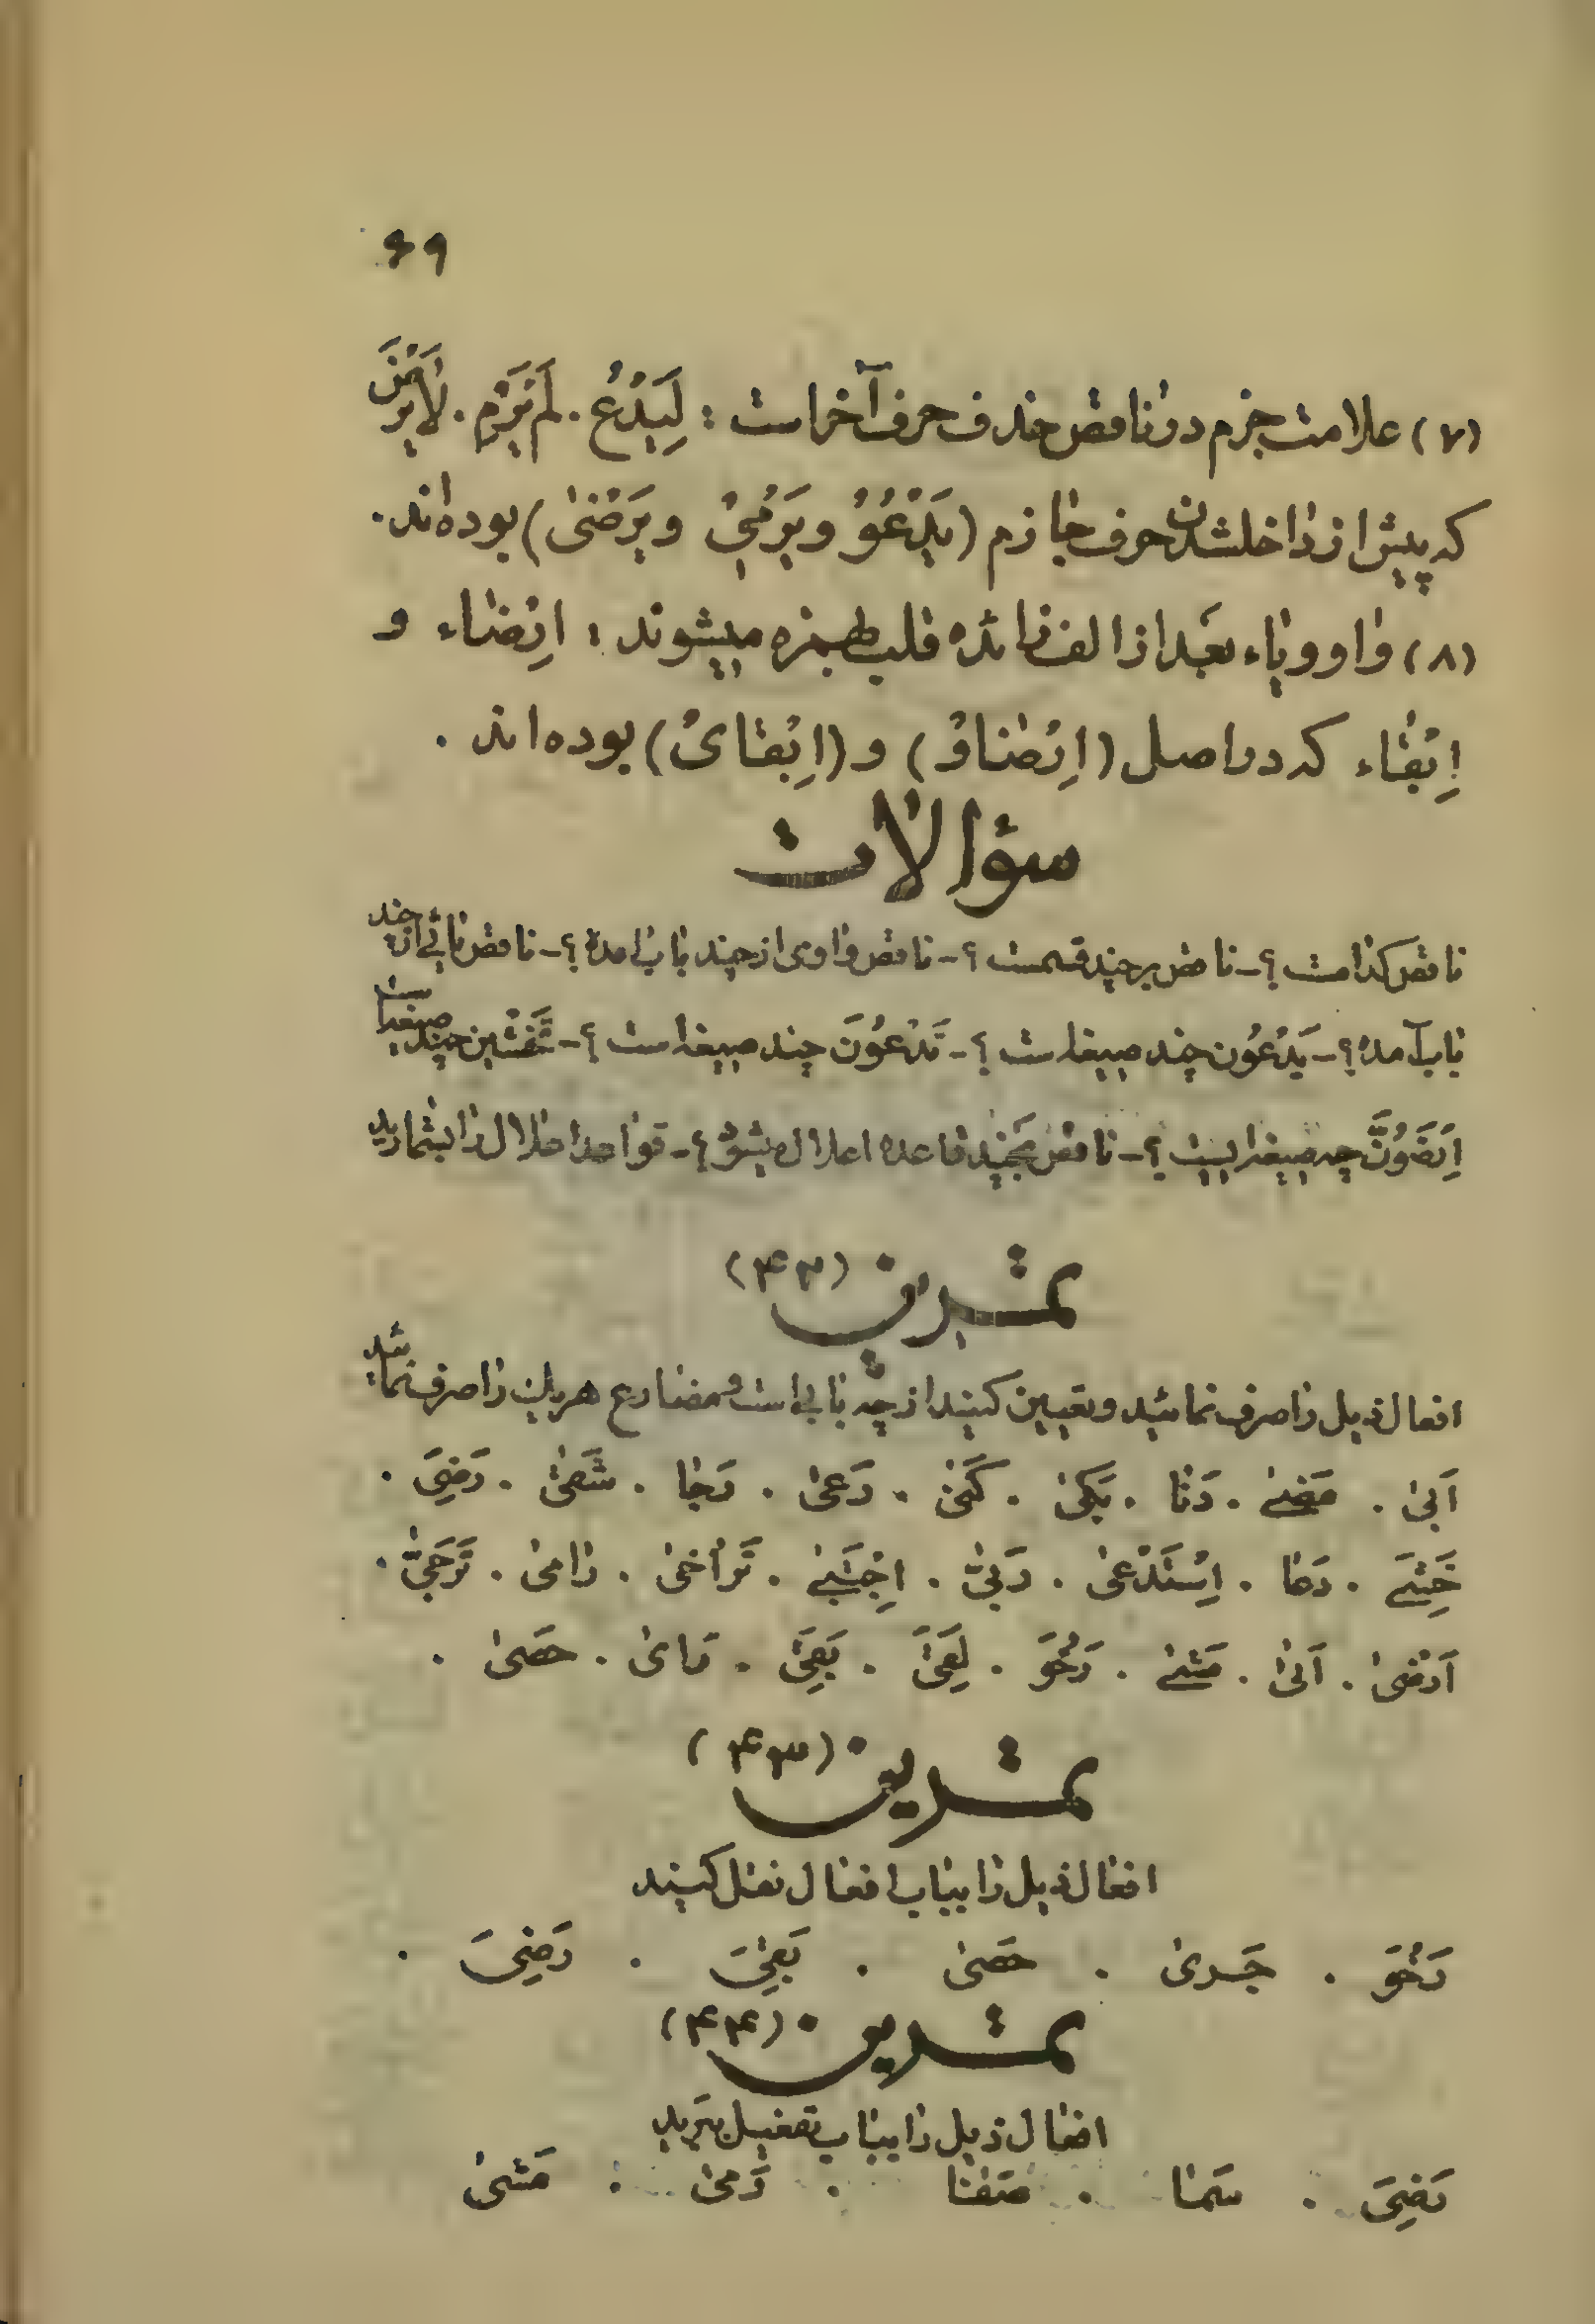 ۶۹
(۷) علامت جزم در ناقص حذف حرف آخر است : لِیَدْعُ . لَمْ یَرْمِ . لا یَرْضَ
که پیش از داخلشدن حرف جازم (یَدْعُوُ و یَرْمِیُ و یَرْضَیُ) بوده‌اند .
(۸) واو و یاء بعد از الف زائده قلب بهمزه میشوند : اِرْضاء و
اِبْقاء که در اصل (اِرْضاوٌ) و (اِبْقایٌ) بوده‌اند .
سؤالات
ناقص کدامست ؟ - ناقص بر چند قسمست ؟ - ناقص واوی از چند باب آمده ؟ - ناقص یائی از چند
باب آمده ؟ - یَدْعُون چند صیغه است ؟ - تَدْعُونَ چند صیغه است ؟ - تَخْشَیْن چند صیغه است
اِرْضَوُنَّ چه صیغه ایست ؟ - ناقص بچند قاعده اعلال میشود ؟ - قواعد اعلال را بشمارید
تمرین (۴۲)
افعال ذیل را صرف نمائید و تعیین کنید از چه بابی است و مضارع هر یک را صرف نمائید
اَبیٰ . مَضیٰ . دَنا . بَکیٰ . کَفیٰ . رَعیٰ . رَجا . شَفیٰ . رَضِیَ .
خَشِیَ . دَعا . اِسْتَدْعیٰ . رَبّیٰ . اِجْتَبیٰ . تَراخیٰ . رامیٰ . تَرَجّیٰ .
اَرْضیٰ . اَتیٰ . مَشیٰ . رَخُوَ . لَقِیَ . بَقِیَ . . عَصیٰ .
تمرین (۴۳)
افعال ذیل را بباب افعال نقل کنید
رَخُوَ . جَریٰ . عَصیٰ . بَقِیَ . رَضِیَ .
تمرین (۴۴)
افعال ذیل را بباب تفعیل ببرید
رَضِیَ . سَما . صَفا . رَمیٰ . مَشیٰ